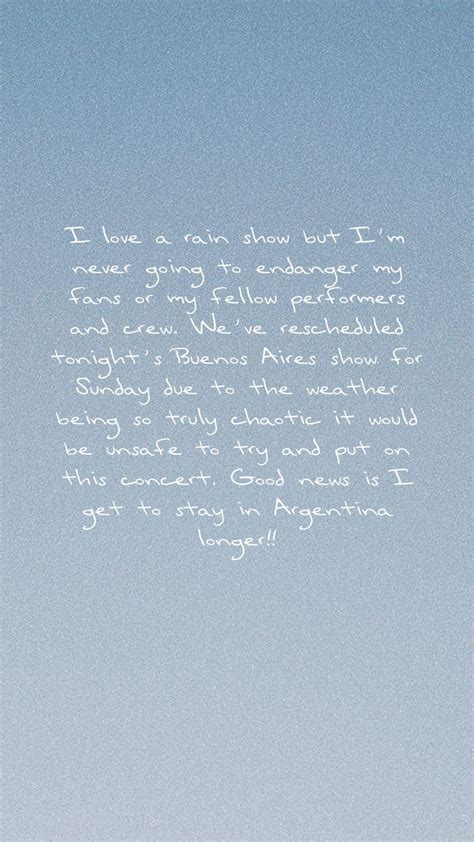 I love a rain show but I'm
never going to endanger my
fans or my fellow performers
and crew. We've rescheduled
tonight's Buenos Aires show for
Sunday due to the weather
being so truly chaotic it would
be unsafe to try and put on
this concert. Good news is I
get to stay in Argentina
longer!!